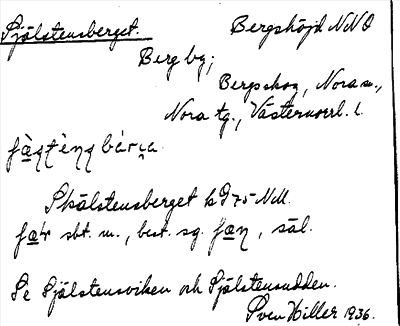 Själstensberget. Bergshöjd NNO
Berg by;
Bergskog, Nora sn.,
Nora tg., Västernorrl. l.
Skälstensberget k D 75 NM.
sbt. m., best. sg. , säl.
Se Själstensviken och Själstensudden.
Sven Hiller 1936.